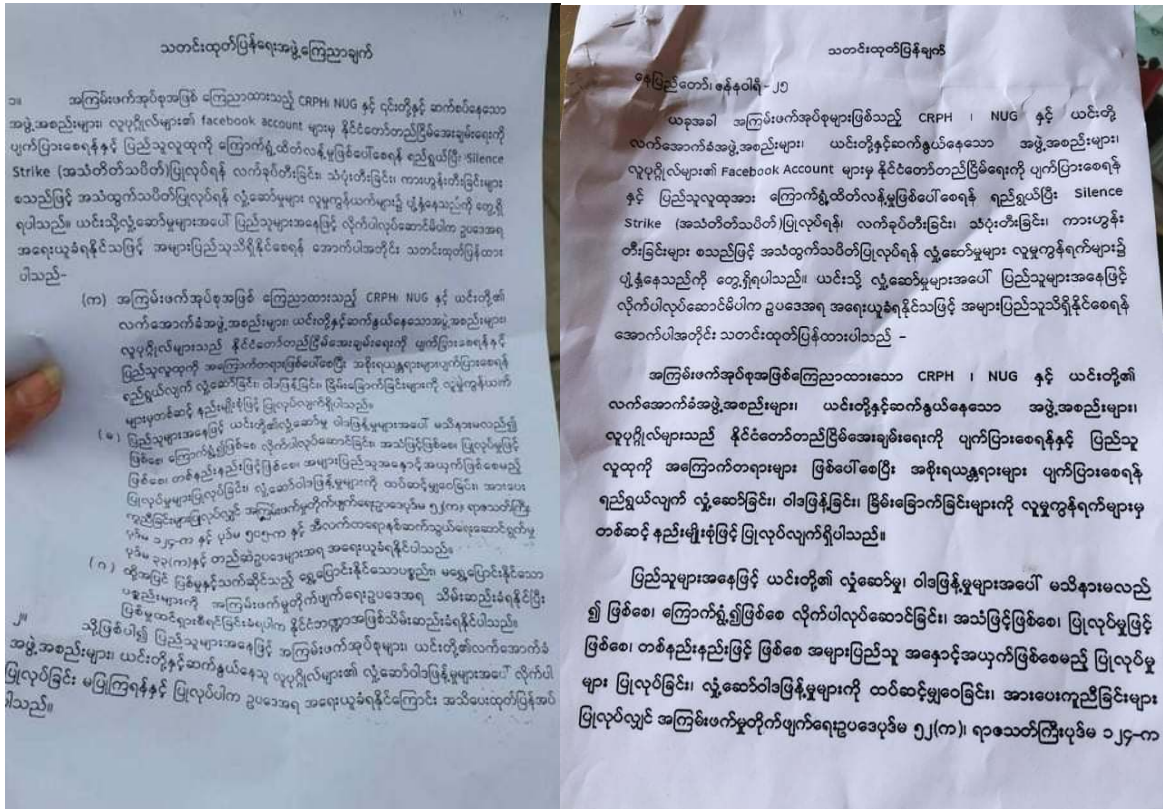 သတင်းထုတ်ပြန်ရေးအဖွဲ့ကြေညာချက်
၁။ အကြမ်းဖက်အုပ်စုအဖြစ် ကြေညာထားသည့် CRPH၊ NUG နှင့် ၎င်းတို့နှင့် ဆက်စပ်နေသော
အဖွဲ့အစည်းများ၊ လူပုဂ္ဂိုလ်များ၏ facebook account များမှ နိုင်ငံတော်တည်ငြိမ်အေးချမ်းရေးကို
ပျက်ပြားစေရန်နှင့် ပြည်သူလူထုကို ကြောက်ရွံ့ထိတ်လန့်မှုဖြစ်ပေါ်စေရန် ရည်ရွယ်ပြီး Silence
Strike (အသံတိတ်သပိတ်)ပြုလုပ်ရန် လက်ခုပ်တီးခြင်း၊ သံပုံးတီးခြင်း၊ ကားဟွန်းတီးခြင်းများ
စသည်ဖြင့် အသံထွက်သပိတ်ပြုလုပ်ရန် လှုံ့ဆော်မှုများ လူမှုကွန်ယက်များ၌ ပျံ့နှံ့နေသည်ကို တွေ့ရှိ
ရပါသည်။ ယင်းသို့လှုံ့ဆော်မှုများအပေါ် ပြည်သူများအနေဖြင့် လိုက်ပါလုပ်ဆောင်မိပါက ဥပဒေအရ
အရေးယူခံရနိုင်သဖြင့် အများပြည်သူသိရှိနိုင်စေရန် အောက်ပါအတိုင်း သတင်းထုတ်ပြန်ထား
ပါသည်-
(က) အကြမ်းဖက်အုပ်စုအဖြစ် ကြေညာထားသည့် CRPH၊ NUG နှင့် ယင်းတို့၏
လက်အောက်ခံအဖွဲ့အစည်းများ၊ ယင်းတို့နှင့်ဆက်နွယ်နေသောအဖွဲ့အစည်းများ၊
လူပုဂ္ဂိုလ်များသည် နိုင်ငံတော်တည်ငြိမ်အေးချမ်းရေးကို ပျက်ပြားစေရန်နှင့်
ပြည်သူလူထုကို အကြောက်တရားဖြစ်ပေါ်စေပြီး အစိုးရယန္တရားများပျက်ပြားစေရန်
ရည်ရွယ်လျက် လှုံ့ဆော်ခြင်း၊ ဝါဒဖြန့်ခြင်း၊ ခြိမ်းခြောက်ခြင်းများကို လူမှုကွန်ယက်
များမှတစ်ဆင့် နည်းမျိုးစုံဖြင့် ပြုလုပ်လျက်ရှိပါသည်။
(ခ) ပြည်သူများအနေဖြင့် ယင်းတို့၏လှုံ့ဆော်မှု ဝါဒဖြန့်မှုများအပေါ် မသိနားမလည်၍
ဖြစ်စေ၊ ကြောက်ရွံ့၍ဖြစ်စေ လိုက်ပါလုပ်ဆောင်ခြင်း၊ အသံဖြင့်ဖြစ်စေ၊ ပြုလုပ်မှုဖြင့်
ဖြစ်စေ၊ တစ်နည်းနည်းဖြင့်ဖြစ်စေ၊ အများပြည်သူအနှောင့်အယှက်ဖြစ်စေမည့်
ပြုလုပ်မှုများပြုလုပ်ခြင်း၊ လှုံ့ဆော်ဝါဒဖြန့်မှုများကို ထပ်ဆင့်မျှဝေခြင်း၊ အားပေး
ကူညီခြင်းများပြုလုပ်လျှင် အကြမ်းဖက်မှုတိုက်ဖျက်ရေးဥပဒေပုဒ်မ ၅၂(က)၊ ရာဇသတ်ကြီး
ပုဒ်မ ၁၂၄-က နှင့် ပုဒ်မ ၅၀၅-က နှင့် အီလက်ထရောနစ်ဆက်သွယ်ရေးဆောင်ရွက်မှု
ပုဒ်မ ၃၃(က)နှင့် တည်ဆဲဥပဒေများအရ အရေးယူခံရနိုင်ပါသည်။
(ဂ) ထို့အပြင် ဖြစ်မှုနှင့်သက်ဆိုင်သည့် ရွှေ့ပြောင်းနိုင်သောပစ္စည်း၊ မရွှေ့ပြောင်းနိုင်သော
ပစ္စည်းများကို အကြမ်းဖက်မှုတိုက်ဖျက်ရေးဥပဒေအရ သိမ်းဆည်းခံရနိုင်ပြီး
ပြစ်မှုထင်ရှားစီရင်ခြင်းခံရပါက နိုင်ငံ့ဘဏ္ဍာအဖြစ်သိမ်းဆည်းခံရနိုင်ပါသည်။
၂။ သို့ဖြစ်ပါ၍ ပြည်သူများအနေဖြင့် အကြမ်းဖက်အုပ်စုများ၊ ယင်းတို့၏လက်အောက်ခံ
အဖွဲ့အစည်းများ၊ ယင်းတို့နှင့်ဆက်နွယ်နေသူ လူပုဂ္ဂိုလ်များ၏ လှုံ့ဆော်ဝါဒဖြန့်မှုများအပေါ် လိုက်ပါ
ပြုလုပ်ခြင်း မပြုကြရန်နှင့် ပြုလုပ်ပါက ဥပဒေအရ အရေးယူခံရနိုင်ကြောင်း အသိပေးထုတ်ပြန်အပ်
ပါသည်။
သတင်းထုတ်ပြန်ချက်
နေပြည်တော်၊ ဇန်နဝါရီ-၂၅
ယခုအခါ အကြမ်းဖက်အုပ်စုများဖြစ်သည့် CRPH ၊ NUG နှင့် ယင်းတို့
လက်အောက်ခံအဖွဲ့အစည်းများ၊ ယင်းတို့နှင့်ဆက်နွယ်နေသော အဖွဲ့အစည်းများ၊
လူပုဂ္ဂိုလ်များ၏ Facebook Account များမှ နိုင်ငံတော်တည်ငြိမ်အေးချမ်းရေးကို ပျက်ပြားစေရန်
နှင့် ပြည်သူလူထုအား ကြောက်ရွံ့ထိတ်လန့်မှုဖြစ်ပေါ်စေရန် ရည်ရွယ်ပြီး Silence
Strike (အသံတိတ်သပိတ်)ပြုလုပ်ရန်၊ လက်ခုပ်တီးခြင်း၊ သံပုံးတီးခြင်း၊ ကားဟွန်း
တီးခြင်းများ စသည်ဖြင့် အသံထွက်သပိတ်ပြုလုပ်ရန် လှုံ့ဆော်မှုများ လူမှုကွန်ရက်များ၌
ပျံ့နှံ့နေသည်ကို တွေ့ရှိရပါသည်။ ယင်းသို့ လှုံ့ဆော်မှုများအပေါ် ပြည်သူများအနေဖြင့်
လိုက်ပါလုပ်ဆောင်မိပါက ဥပဒေအရ အရေးယူခံရနိုင်သဖြင့် အများပြည်သူသိရှိနိုင်စေရန်
အောက်ပါအတိုင်း သတင်းထုတ်ပြန်ထားပါသည် -
အကြမ်းဖက်အုပ်စုအဖြစ်ကြေညာထားသော CRPH ၊ NUG နှင့် ယင်းတို့၏
လက်အောက်ခံအဖွဲ့အစည်းများ၊ ယင်းတို့နှင့်ဆက်နွယ်နေသော အဖွဲ့အစည်းများ၊
လူပုဂ္ဂိုလ်များသည် နိုင်ငံတော်တည်ငြိမ်အေးချမ်းရေးကို ပျက်ပြားစေရန်နှင့် ပြည်သူ
လူထုကို အကြောက်တရားများ ဖြစ်ပေါ်စေပြီး အစိုးရယန္တရားများ ပျက်ပြားစေရန်
ရည်ရွယ်လျက် လှုံ့ဆော်ခြင်း၊ ဝါဒဖြန့်ခြင်း၊ ခြိမ်းခြောက်ခြင်းများကို လူမှုကွန်ရက်များမှ
တစ်ဆင့် နည်းမျိုးစုံဖြင့် ပြုလုပ်လျက်ရှိပါသည်။
ပြည်သူများအနေဖြင့် ယင်းတို့၏ လှုံ့ဆော်မှု၊ ဝါဒဖြန့်မှုများအပေါ် မသိနားမလည်
၍ ဖြစ်စေ၊ ကြောက်ရွံ့၍ဖြစ်စေ လိုက်ပါလုပ်ဆောင်ခြင်း၊ အသံဖြင့်ဖြစ်စေ၊ ပြုလုပ်မှုဖြင့်
ဖြစ်စေ၊ တစ်နည်းနည်းဖြင့် ဖြစ်စေ အများပြည်သူ အနှောင့်အယှက်ဖြစ်စေမည့် ပြုလုပ်မှု
များ ပြုလုပ်ခြင်း၊ လှုံ့ဆော်ဝါဒဖြန့်မှုများကို ထပ်ဆင့်မျှဝေခြင်း၊ အားပေးကူညီခြင်းများ
ပြုလုပ်လျှင် အကြမ်းဖက်မှုတိုက်ဖျက်ရေးဥပဒေပုဒ်မ ၅၂(က)၊ ရာဇသတ်ကြီးပုဒ်မ ၁၂၄-က